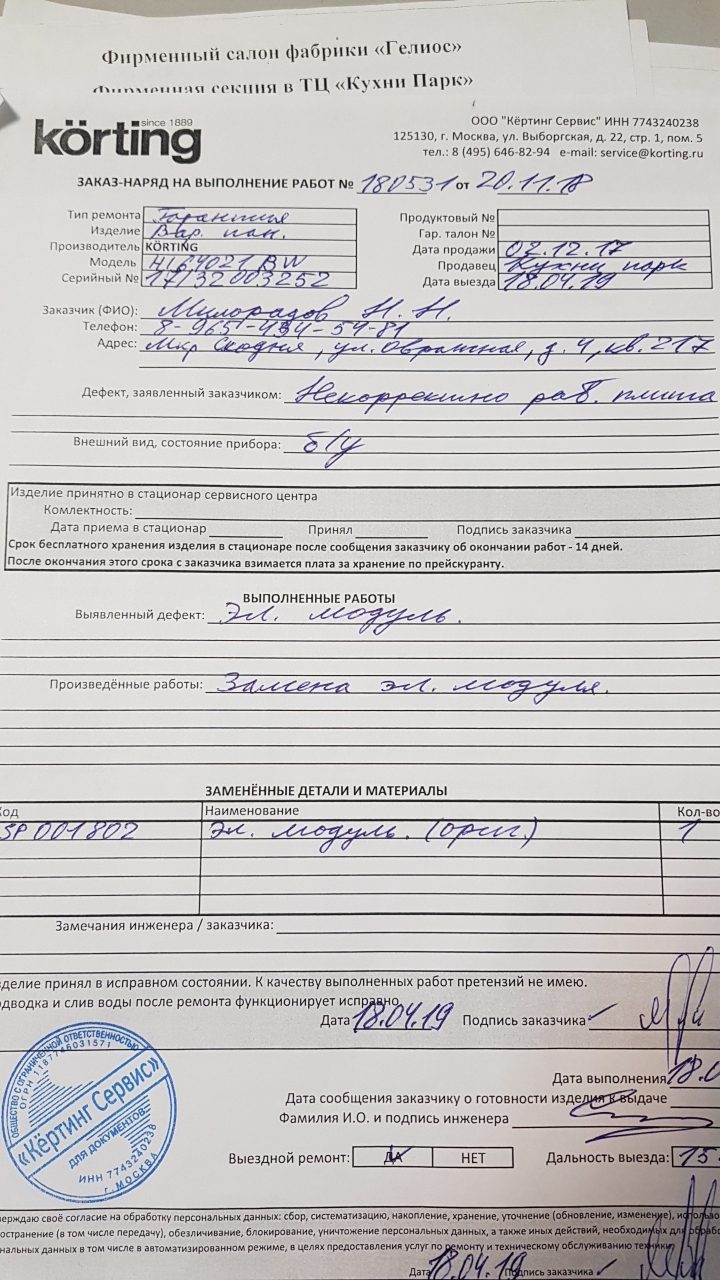 Фирменный салон фабрики «Гелиос»
Фирменная секция в ТЦ «Кухни Парк»
since 1889
körting
ООО "Кёртинг Сервис" ИНН 7743240238
125130, г. Москва, ул. Выборгская, д. 22, стр. 1, пом. 5
тел.: 8 (495) 646-82-94 e-mail: service@korting.ru
ЗАКАЗ-НАРЯД НА ВЫПОЛНЕНИЕ РАБОТ № 180531 от 20.11.18
Тип ремонта Гарантия
Изделие Вар. пан.
Производитель KÖRTING
Модель HI64021 BW
Серийный № 17132003252
Продуктовый №
Гар. талон №
Дата продажи 02.12.17
Продавец Кухни парк
Дата выезда 18.04.19
Заказчик (ФИО): Милорадов Н. Н.
Телефон: 8-965-434-54-81
Адрес: Мкр Сходня, ул. Овражная, д. 4, кв. 217
Дефект, заявленный заказчиком: Некорректно раб. плита
Внешний вид, состояние прибора: б/у
Изделие принятно в стационар сервисного центра
Комлектность:
Дата приема в стационар Принял Подпись заказчика
Срок бесплатного хранения изделия в стационаре после сообщения заказчику об окончании работ - 14 дней.
После окончания этого срока с заказчика взимается плата за хранение по прейскуранту.
ВЫПОЛНЕННЫЕ РАБОТЫ
Выявленный дефект: Эл. модуль.
Произведённые работы: Замена эл. модуля.
ЗАМЕНЁННЫЕ ДЕТАЛИ И МАТЕРИАЛЫ
Код Наименование Кол-во
SP001802 Эл. модуль. (ориг.) 1
Замечания инженера / заказчика:
зделие принял в исправном состоянии. К качеству выполненных работ претензий не имею.
одводка и слив воды после ремонта функционирует исправно
Дата 18.04.19 Подпись заказчика
Дата выполнения 18.0
Дата сообщения заказчику о готовности изделия к выдаче
Фамилия И.О. и подпись инженера
Выездной ремонт: ДА НЕТ Дальность выезда: 15
ОБЩЕСТВО С ОГРАНИЧЕННОЙ ОТВЕТСТВЕННОСТЬЮ
ОГРН 1187746031571
«Кёртинг Сервис»
ДЛЯ ДОКУМЕНТОВ
ИНН 7743240238
г. МОСКВА
верждаю своё согласие на обработку персональных данных: сбор, систематизацию, накопление, хранение, уточнение (обновление, изменение), использо
остранение (в том числе передачу), обезличивание, блокирование, уничтожение персональных данных, а также иных действий, необходимых для обрабо
нальных данных в том числе в автоматизированном режиме, в целях предоставления услуг по ремонту и техническому обслуживанию техники
Дата 18.04.19 Подпись заказчика